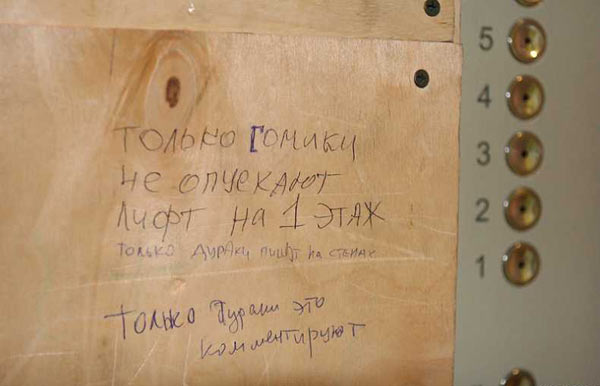 ТОЛЬКО ГОМИКИ
НЕ ОПУСКАЮТ
ЛИФТ НА 1 ЭТАЖ
ТОЛЬКО ДУРАКИ ПИШУТ НА СТЕНАХ
ТОЛЬКО Дураки это
комментируют
5
4
3
2
1